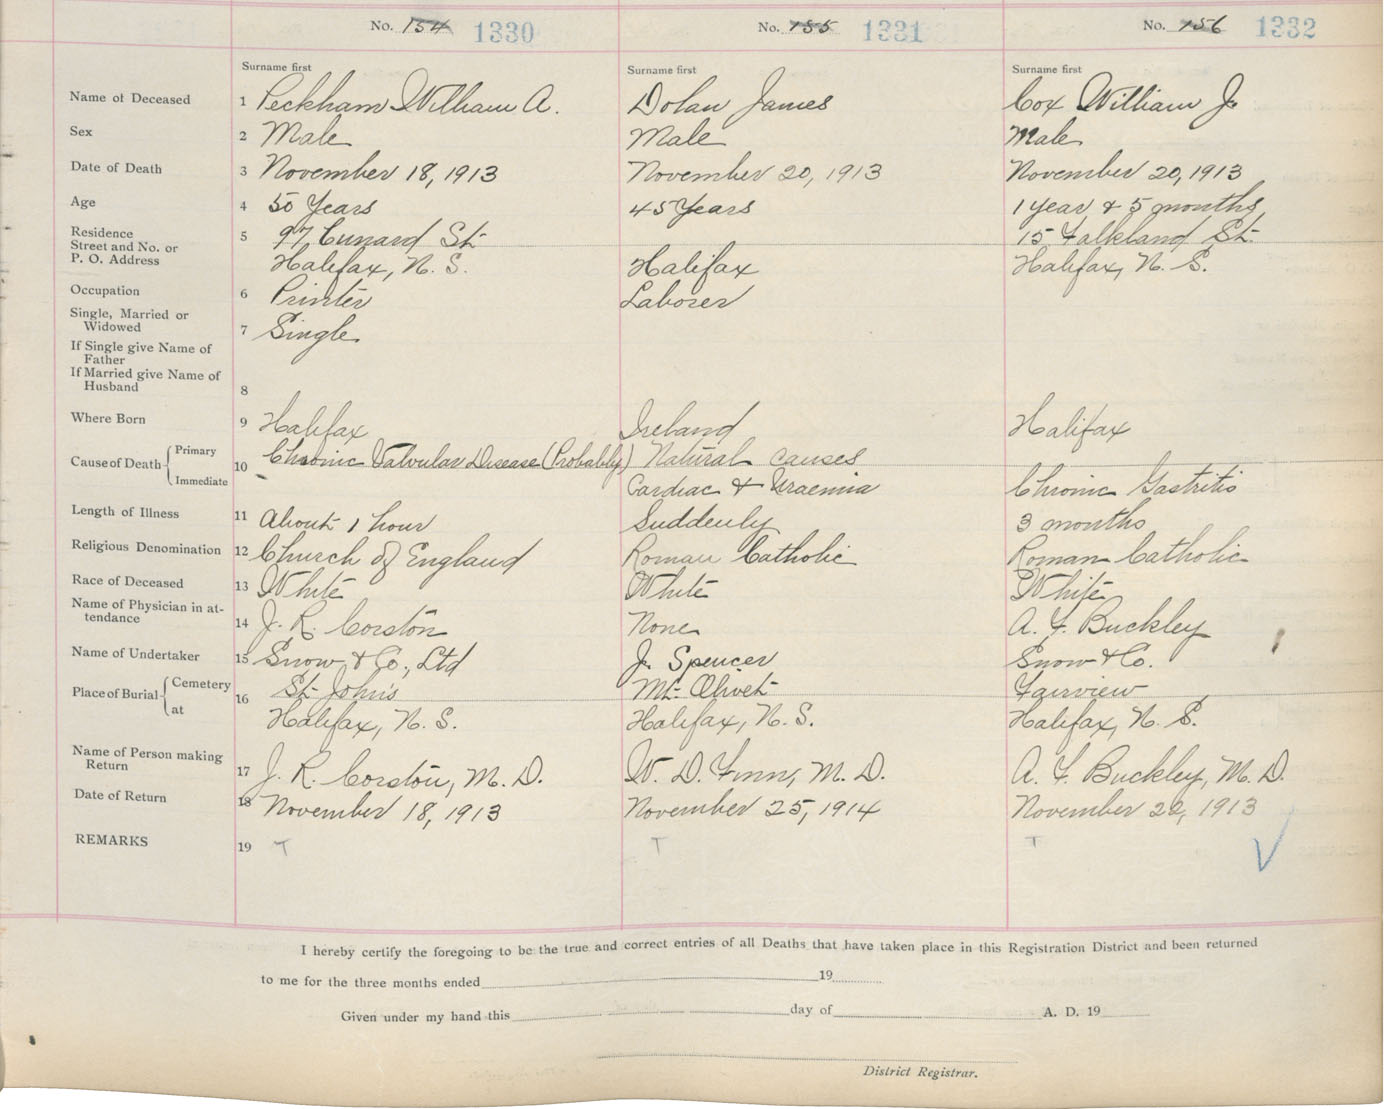 No. 154 1330 No. 155 1331 No. 156 1332
Surname first Surname first Surname first
Name of Deceased 1 Peckham William A. Dolan James Cox William J.
Sex 2 Male Male Male
Date of Death 3 November 18, 1913 November 20, 1913 November 20, 1913
Age 4 50 Years 45 Years 1 year & 5 months
Residence 5 97 Cunard St. 15 Falkland St.
Street and No. or
P. O. Address Halifax, N. S. Halifax Halifax, N. S.
Occupation 6 Printer Laborer
Single, Married or
Widowed 7 Single
If Single give Name of
Father
If Married give Name of
Husband 8
Where Born 9 Halifax Ireland Halifax
Cause of Death Primary 10 Chronic Valvular Disease (Probably) Natural causes
Immediate Cardiac & Uraemia Chronic Gastritis
Length of Illness 11 About 1 hour Suddenly 3 months
Religious Denomination 12 Church of England Roman Catholic Roman Catholic
Race of Deceased 13 White White White
Name of Physician in at-
tendance 14 J. R. Corston None A. F. Buckley
Name of Undertaker 15 Snow & Co., Ltd J. Spencer Snow & Co.
Place of Burial Cemetery 16 St. John's Mt. Olivet Fairview
at Halifax, N. S. Halifax, N. S. Halifax, N. S.
Name of Person making
Return 17 J. R. Corston, M. D. W. D. Finn, M. D. A. F. Buckley, M. D.
Date of Return 18 November 18, 1913 November 25, 1914 November 22, 1913
REMARKS 19 T T T
I hereby certify the foregoing to be the true and correct entries of all Deaths that have taken place in this Registration District and been returned
to me for the three months ended 19
Given under my hand this day of A. D. 19
District Registrar.